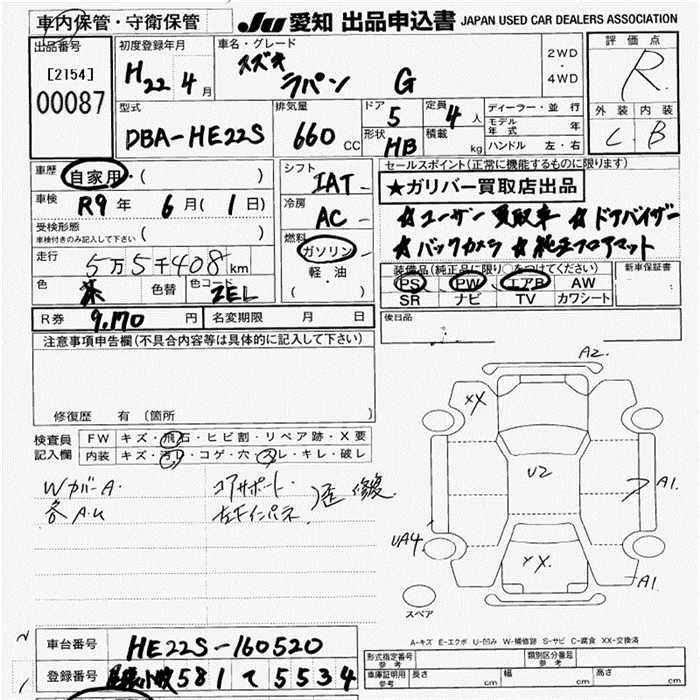 車内保管・守衛保管
JU 愛知 出品申込書 JAPAN USED CAR DEALERS ASSOCIATION
出品番号
[2154]
00087
初度登録年月
H22年4月
車名・グレード
スズキ
ラパン G
2WD
・
4WD
評価点
R
外装 内装
C B
型式
DBA-HE22S
排気量
660 CC
ドア
5
形状
HB
定員
4人
積載
kg
ディーラー・並行
モデル年式 年
ハンドル 左・右
車歴 自家用・( )
車検 R9年 6月(1日)
受検形態
車検付きのみ記入して下さい ( )
走行 5万5千408km
色 茶 色替 色コード ZEL
シフト
IAT
冷房
AC
燃料
ガソリン
軽・油
( )
セールスポイント(正常に機能するものに限ります)
★ガリバー買取店出品
☆ユーザー買取車 ☆ドアバイザー
☆バックカメラ ☆純正フロアマット
装備品(純正品に限り○をつけてください)
PS PW エアB AW
SR ナビ TV カワシート
新車保証書
R券 9,170円 名変期限 月 日
後日品
注意事項申告欄(不具合内容等は具体的に記入して下さい)
修復歴 有 〔箇所 〕
検査員
記入欄
FW キズ・飛石・ヒビ割・リペア跡・X要
内装 キズ・汚レ・コゲ・穴・スレ・キレ・破レ
Wカバー A・ コアサポート・
各A.U 左下インパネ 歪 修復
A2
XX
U2
A1
UA4
XX
A1
スペア
A-キズ E-エクボ U-凹み W-補修跡 S-サビ C-腐食 XX-交換済
車台番号 HE22S-160520
登録番号 581 て 5534
形式指定番号
参考
類別区分番号
参考
車庫証明用
参考
長さ cm 幅 cm 高さ cm